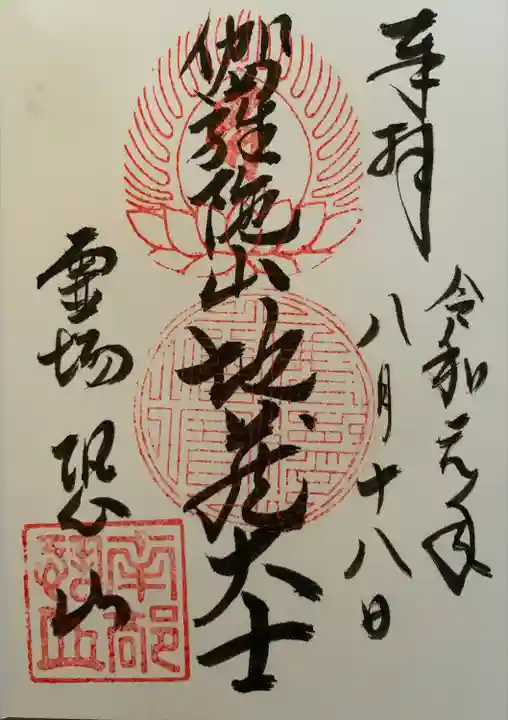 奉拝
令和元年
八月十八日
伽羅陀山地蔵大士
霊場 恐山
南部
恐山